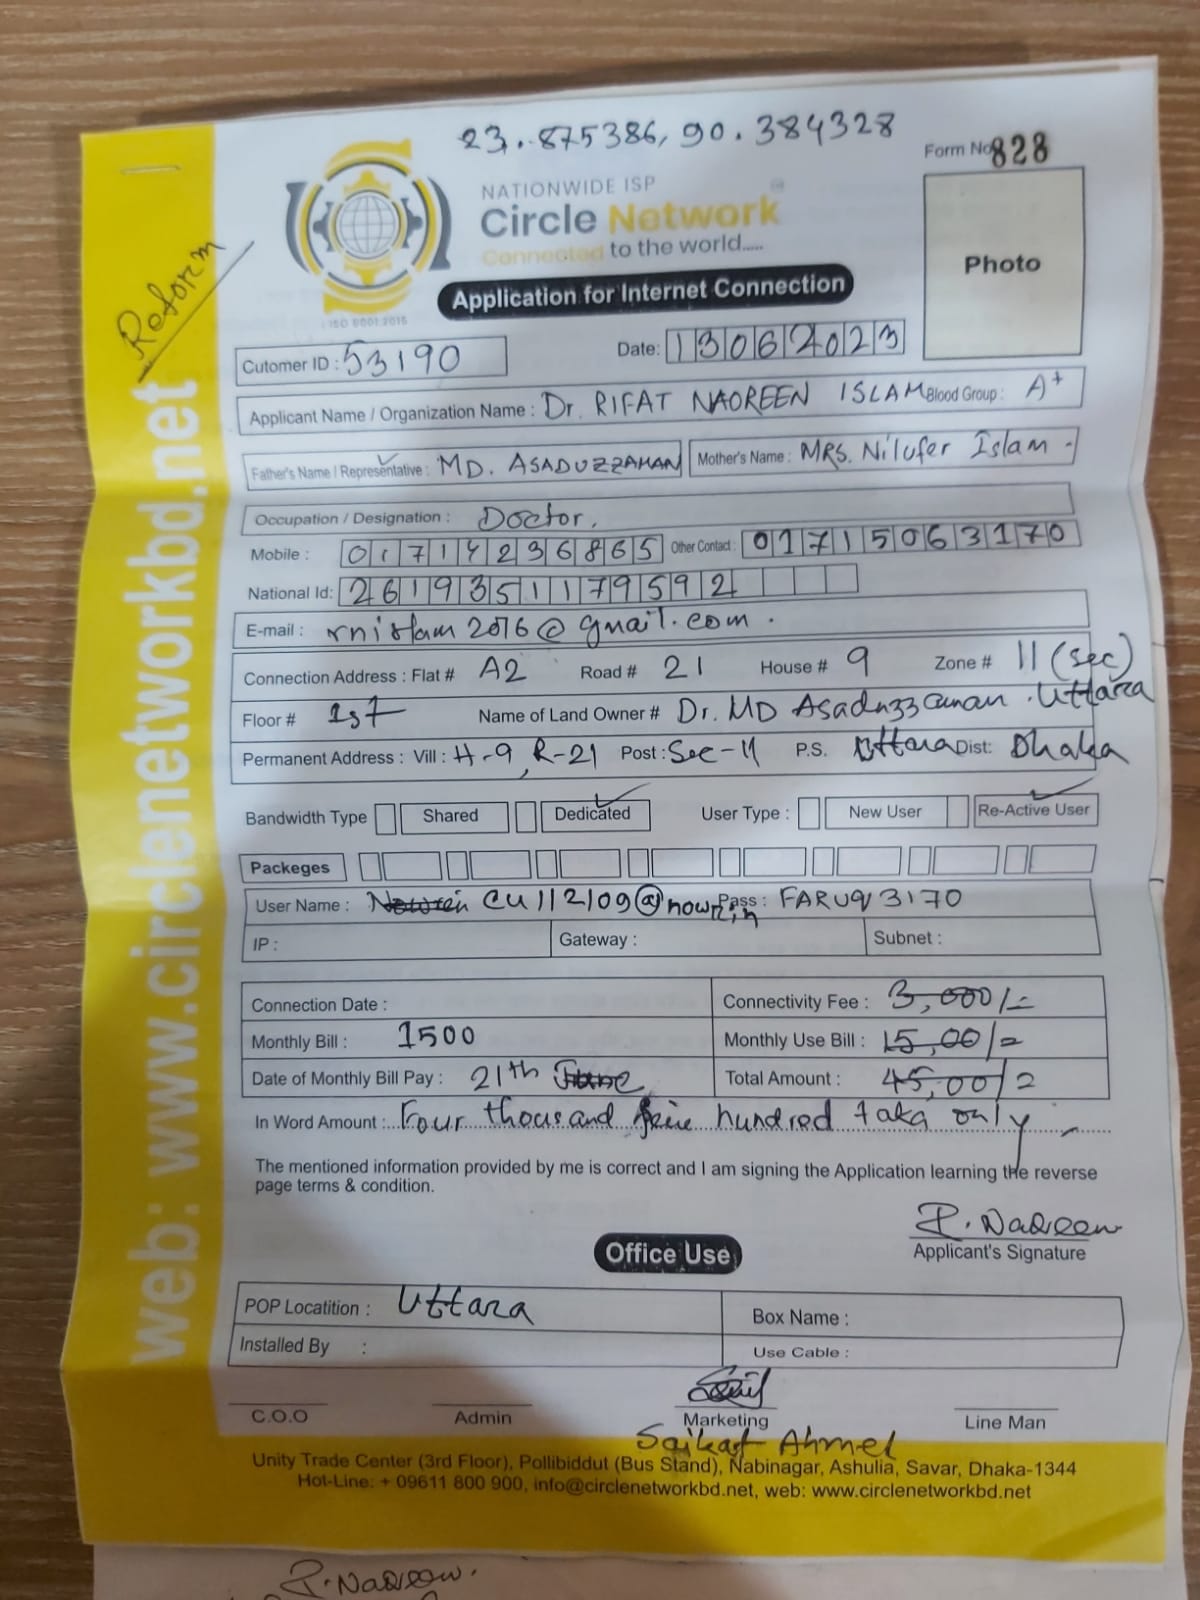 23.875386, 90.384328
Form No 828
NATIONWIDE ISP
Circle Network
Connected to the world.....
ISO 9001:2015
Application for Internet Connection
Photo
Reform
web: www.circlenetworkbd.net
Cutomer ID : 53190 Date: 13062023
Applicant Name / Organization Name : Dr. RIFAT NAOREEN ISLAM Blood Group : A+
Father's Name / Representative : MD. ASADUZZAMAN Mother's Name : MRS. Nilufer Islam
Occupation / Designation : Doctor.
Mobile : 01714236865 Other Contact : 01715063170
National Id: 2619351179592
E-mail : rnislam2016@gmail.com.
Connection Address : Flat # A2 Road # 21 House # 9 Zone # 11 (sec)
Floor # 1st Name of Land Owner # Dr. MD Asaduzzaman . Uttara
Permanent Address : Vill : H-9, R-21 Post : Sec-11 P.S. Uttara Dist: Dhaka
Bandwidth Type Shared Dedicated User Type : New User Re-Active User
Packeges
User Name : cu112109@nowrin Pass : FARUQ3170
IP : Gateway : Subnet :
Connection Date : Connectivity Fee : 3,000/=
Monthly Bill : 1500 Monthly Use Bill : 15,00/=
Date of Monthly Bill Pay : 21th June Total Amount : 45,00/=
In Word Amount : Four thousand five hundred taka only
The mentioned information provided by me is correct and I am signing the Application learning the reverse
page terms & condition.
R. Naoreen
Applicant's Signature
Office Use
POP Locatition : Uttara Box Name :
Installed By : Use Cable :
C.O.O Admin Marketing Line Man
Saikat Ahmed
Unity Trade Center (3rd Floor), Pollibiddut (Bus Stand), Nabinagar, Ashulia, Savar, Dhaka-1344
Hot-Line: + 09611 800 900, info@circlenetworkbd.net, web: www.circlenetworkbd.net
R. Naoreen.